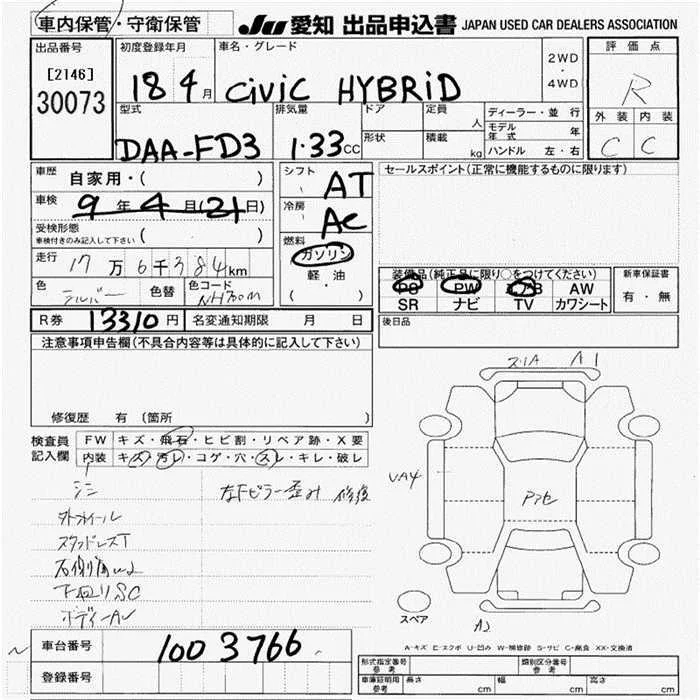 車内保管・守衛保管
JU 愛知 出品申込書 JAPAN USED CAR DEALERS ASSOCIATION
出品番号
[2146]
30073
初度登録年月
18 4月
車名・グレード
CiViC HYBRiD
2WD
・
4WD
評価点
R
外装 内装
C C
型式
DAA-FD3
排気量
1.33CC
ドア
形状
定員
人
積載
kg
ディーラー・並行
モデル年式 年
ハンドル 左・右
車歴 自家用・( )
車検 9年4月(21日)
受検形態
車検付きのみ記入して下さい ( )
走行 17万6千384km
色 シルバー 色替 色コード NH700M
シフト AT
冷房 AC
燃料
ガソリン
軽・油
( )
セールスポイント(正常に機能するものに限ります)
装備品(純正品に限り○をつけてください)
PS PW エアB AW
SR ナビ TV カワシート
新車保証書
有・無
R券 13310円 名変通知期限 月 日
後日品
注意事項申告欄(不具合内容等は具体的に記入して下さい)
修復歴 有 (箇所
検査員
記入欄
FW キズ・飛石・ヒビ割・リペア跡・X要
内装 キズ・汚レ・コゲ・穴・スレ・キレ・破レ
左Fピラー歪み 修復
外ホイール
スタッドレスT
下回りSC
A1
UA4
A2
スペア
A-キズ E-エクボ U-凹み W-補修跡 S-サビ C-腐食 XX-交換済
車台番号 1003766
登録番号
形式指定番号
参考
類別区分番号
参考
車庫証明用
参考
長さ cm 幅 cm 高さ cm